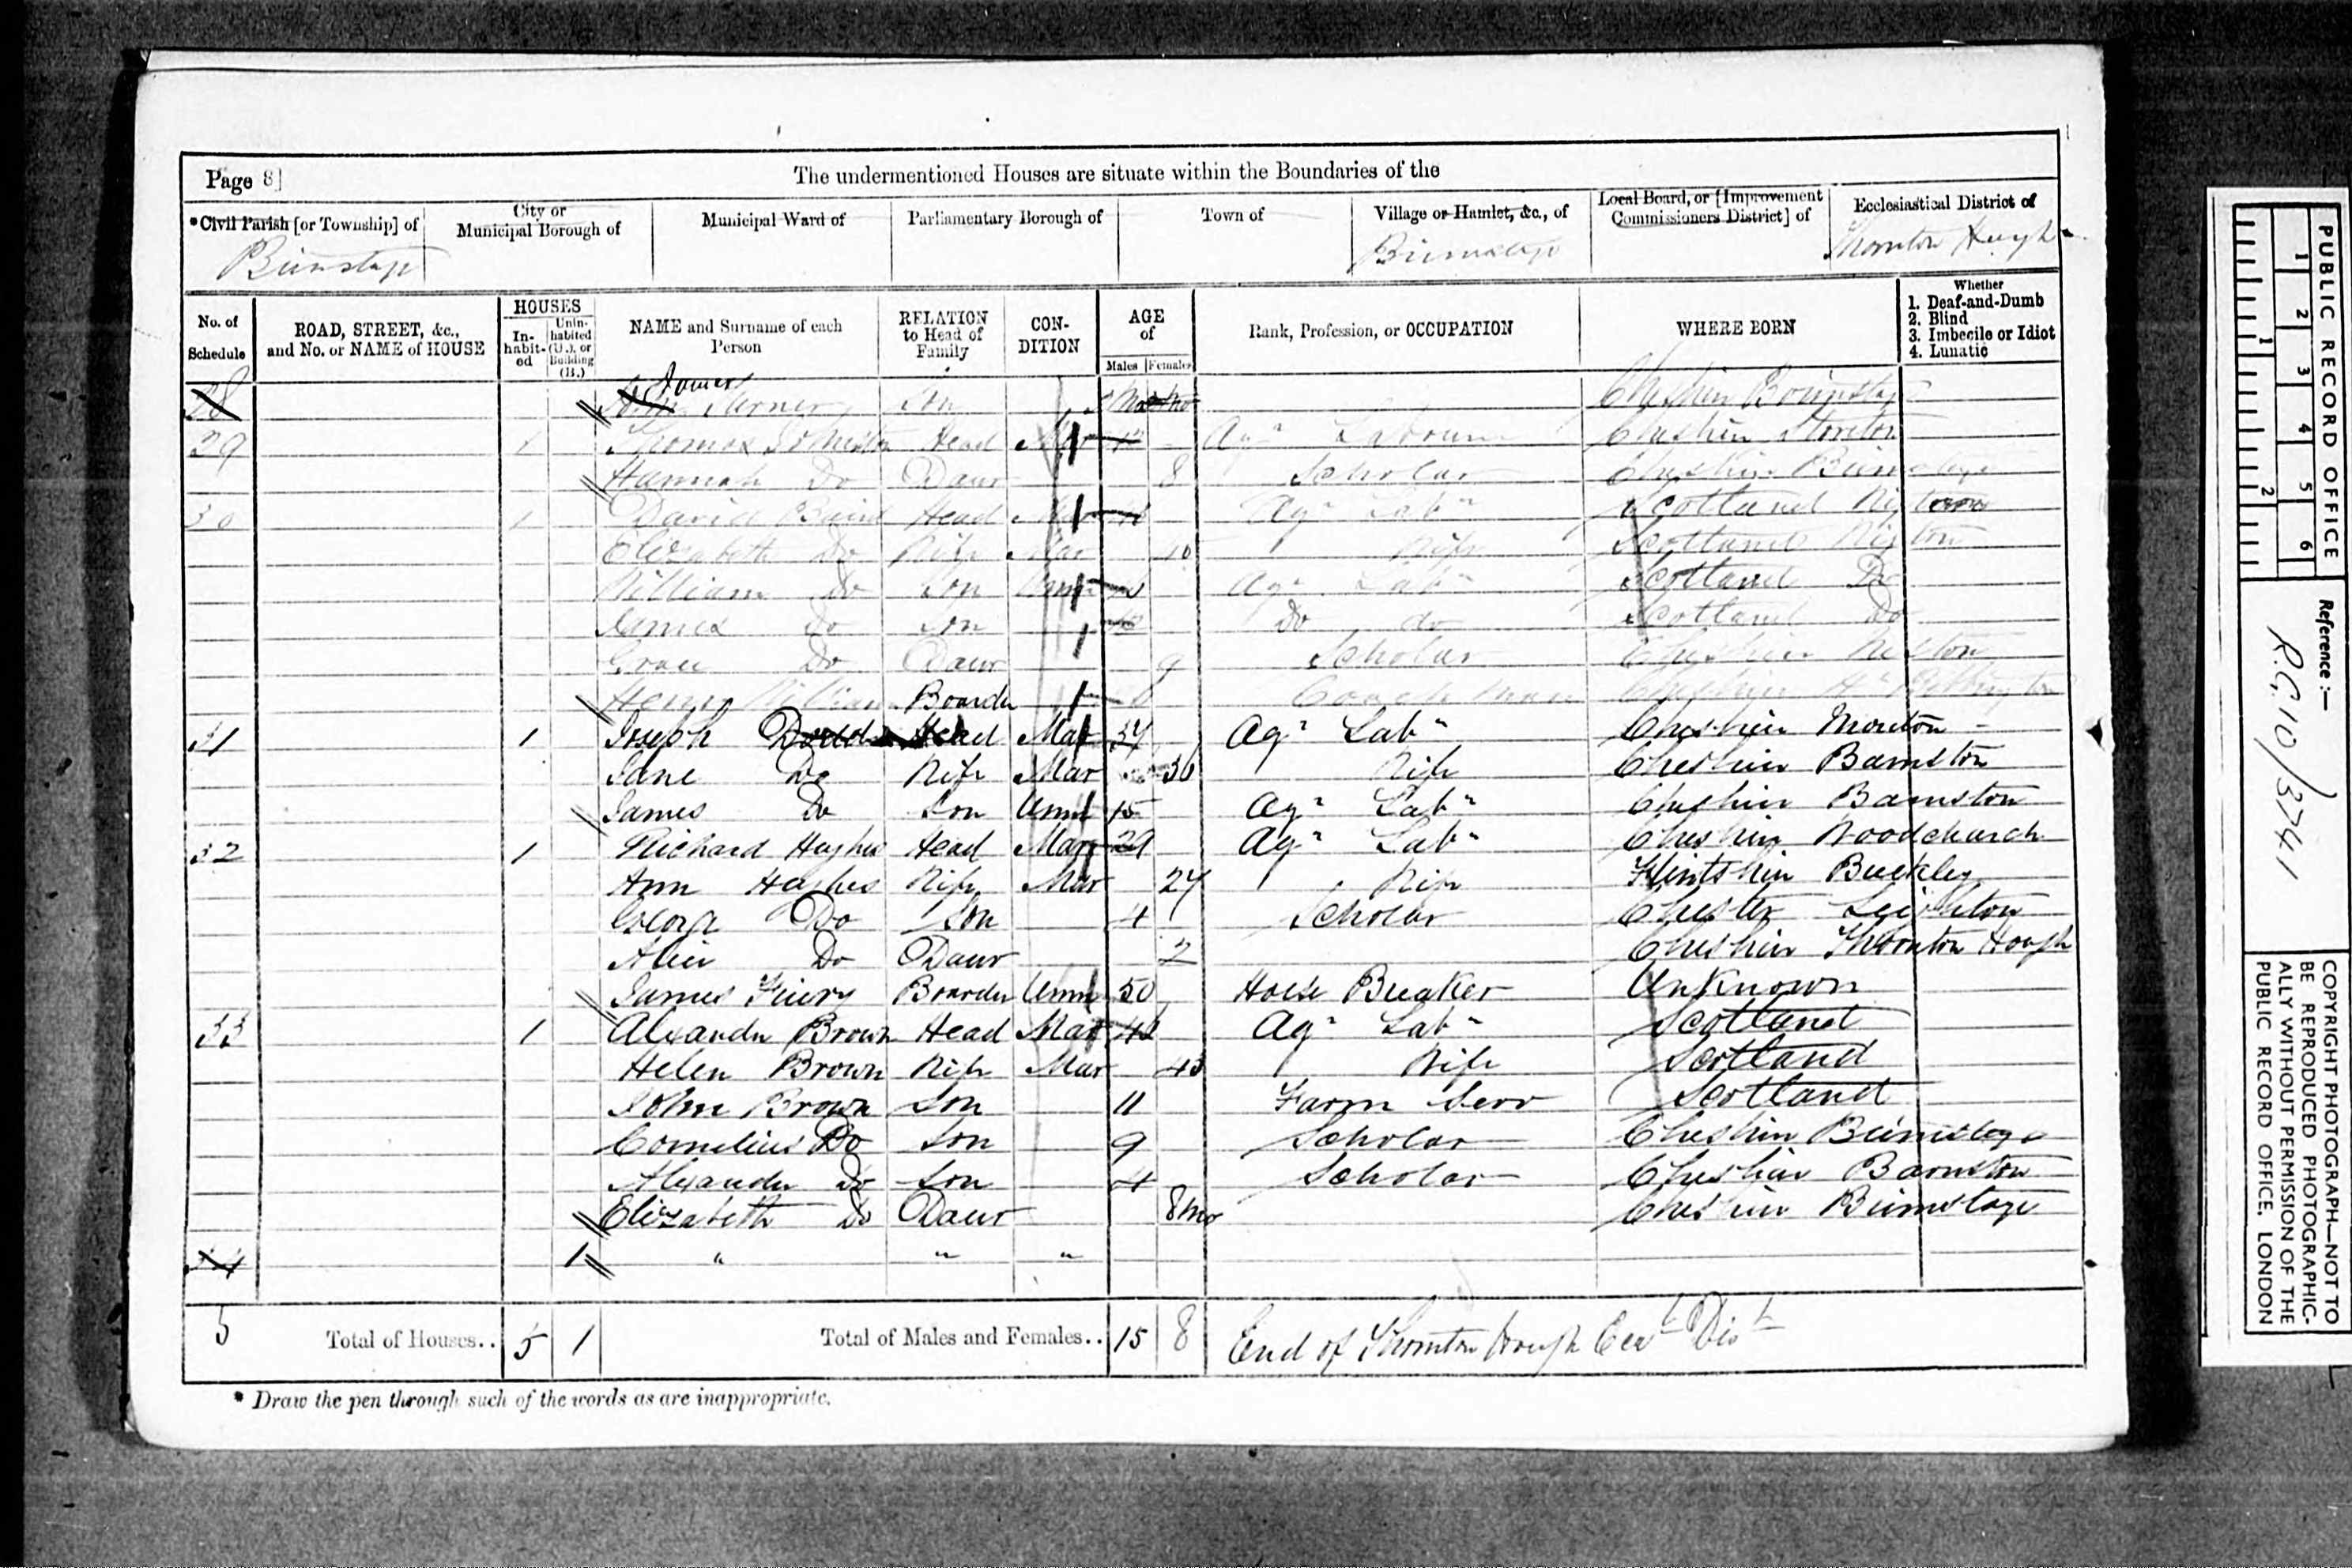 Page 8]
The undermentioned Houses are situate within the Boundaries of the
*Civil Parish [or Township] of
City or Municipal Borough of
Municipal Ward of
Parliamentary Borough of
Town of
Village or Hamlet, &c., of
Local Board, or [Improvement Commissioners District] of
Ecclesiastical District of
Brimstage
Brimstage
Thornton Hough
No. of Schedule
ROAD, STREET, &c., and No. or NAME of HOUSE
HOUSES
In-habit-ed
Unin-habited (U.), or Building (B.)
NAME and Surname of each Person
RELATION to Head of Family
CON-DITION
AGE of
Males Females
Rank, Profession, or OCCUPATION
WHERE BORN
Whether
1. Deaf-and-Dumb
2. Blind
3. Imbecile or Idiot
4. Lunatic
28 James Son Mo Cheshire Brimstage
29 1 Thomas Johnston Head Mar Agr Labourer Cheshire Storeton
Hannah Do Daur 8 Scholar Cheshire Brimstage
30 1 David Baird Head Mar Agr Labr Scotland
Elizabeth Do Wife Mar 40 Wife Scotland
William Do Son Unm Agr Labr Scotland Do
James Do Son Do do Scotland Do
Grace Do Daur 9 Scholar Cheshire Neston
Henry Boarder Coach Man Cheshire
31 1 Joseph Dodd Head Mar 37 Agr Labr Cheshire Moreton
Jane Do Wife Mar 36 Wife Cheshire Barnston
James Do Son Unm 15 Agr Labr Cheshire Barnston
32 1 Richard Hughes Head Mar 29 Agr Labr Cheshire Woodchurch
Ann Hughes Wife Mar 27 Wife Flintshire Buckley
George Do Son 4 Scholar Chester Leighton
Alice Do Daur 2 Cheshire Thornton Hough
James Boarder Unm 50 Horse Breaker Unknown
33 1 Alexander Brown Head Mar 42 Agr Labr Scotland
Helen Brown Wife Mar 43 Wife Scotland
John Brown Son 11 Farm Serv Scotland
Cornelius Do Son 9 Scholar Cheshire Brimstage
Alexander Do Son 4 Scholar Cheshire Barnston
Elizabeth Do Daur 8mo Cheshire Brimstage
34 1 " " "
5 Total of Houses.. 5 1 Total of Males and Females.. 15 8 End of Thornton Hough Eccl Dist
* Draw the pen through such of the words as are inappropriate.
PUBLIC RECORD OFFICE
1 2 3 4 5 6
1 2
Reference :—
R.G. 10/3741
COPYRIGHT PHOTOGRAPH—NOT TO
BE REPRODUCED PHOTOGRAPHIC-
ALLY WITHOUT PERMISSION OF THE
PUBLIC RECORD OFFICE, LONDON